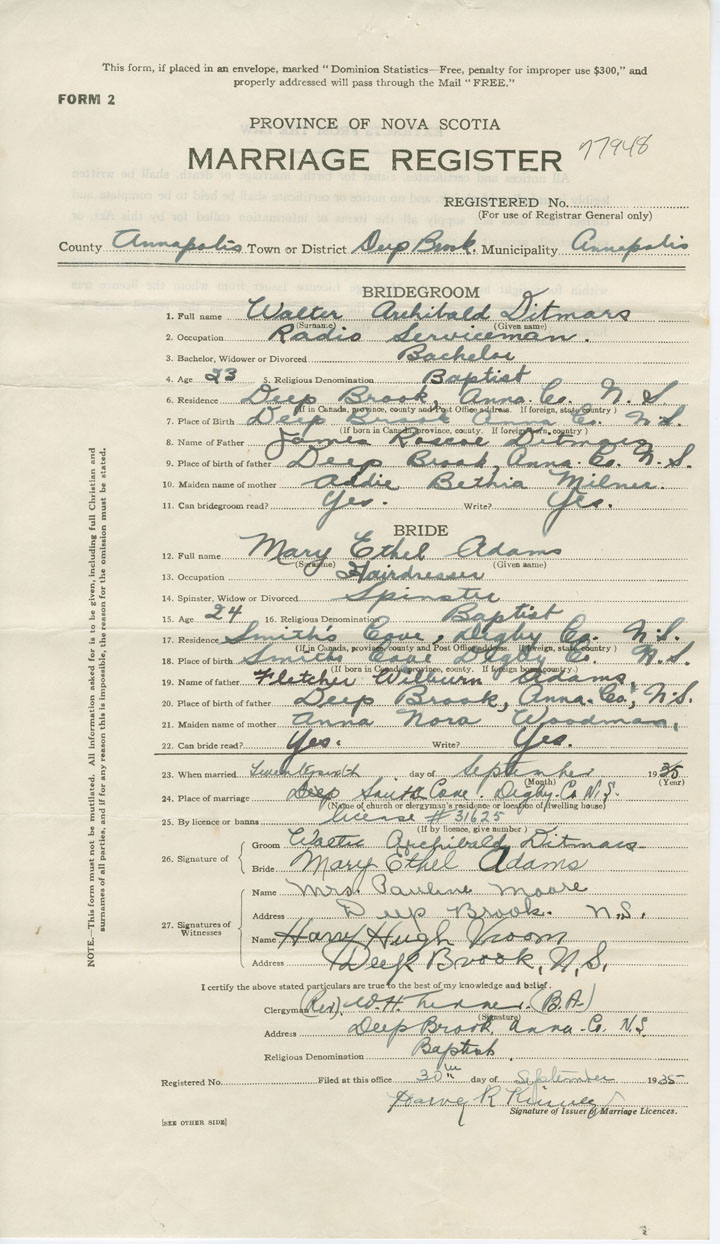 This form, if placed in an envelope, marked "Dominion Statistics—Free, penalty for improper use $300," and
properly addressed will pass through the Mail "FREE."
FORM 2
PROVINCE OF NOVA SCOTIA
MARRIAGE REGISTER 77948
REGISTERED No.
(For use of Registrar General only)
County Annapolis Town or District Deep Brook. Municipality Annapolis
BRIDEGROOM
1. Full name Walter Archibald Ditmars
(Surname) (Given name)
2. Occupation Radio Serviceman.
3. Bachelor, Widower or Divorced Bachelor
4. Age 23 5. Religious Denomination Baptist
6. Residence Deep Brook, Anna. Co. N. S
(If in Canada, province, county and Post Office address. If foreign, state country )
7. Place of Birth Deep Brook Anna. Co. N. S.
(If born in Canada, province, county. If foreign born, country. )
8. Name of Father James Roscoe Ditmars
9. Place of birth of father Deep Brook, Anna. Co. N. S.
10. Maiden name of mother Addie Bethia Milner.
11. Can bridegroom read? Yes. Write? Yes.
BRIDE
12. Full name Mary Ethel Adams
(Surname) (Given name)
13. Occupation Hairdresser
14. Spinster, Widow or Divorced Spinster
15. Age 24 16. Religious Denomination Baptist
17. Residence Smith's Cove, Digby Co. N. S.
(If in Canada, province, county and Post Office address. If foreign, state country )
18. Place of birth Smith's Cove Digby Co. N. S.
(If born in Canada, province, county. If foreign born country. )
19. Name of father Fletcher Wilburn Adams,
20. Place of birth of father Deep Brook, Anna. Co., N. S.
21. Maiden name of mother Anna Nora Woodman,
22. Can bride read? Yes. Write? Yes.
23. When married day of September 1935
(Month) (Year)
24. Place of marriage Deep Smith Cove. Digby. Co N. S.
(Name of church or clergyman's residence or location of dwelling house)
25. By licence or banns license # 31625
(If by licence, give number )
26. Signature of
Groom Walter Archibald Ditmars
Bride Mary Ethel Adams
27. Signatures of Witnesses
Name Mrs. Pauline Moore
Address Deep Brook. N.S.
Name Harry Hugh Vroom
Address Deep Brook, N.S.
I certify the above stated particulars are true to the best of my knowledge and belief.
Clergyman (Rev). W. H. (B.A.)
(Signature)
Address Deep Brook, Anna. Co. N.S.
Religious Denomination Baptist.
Registered No. Filed at this office 30th day of September 1935
Harvey R Kinney
Signature of Issuer of Marriage Licences.
[SEE OTHER SIDE]
NOTE.—This form must not be mutilated. All information asked for is to be given, including full Christian and
surnames of all parties, and if for any reason this is impossible, the reason for the omission must be stated.